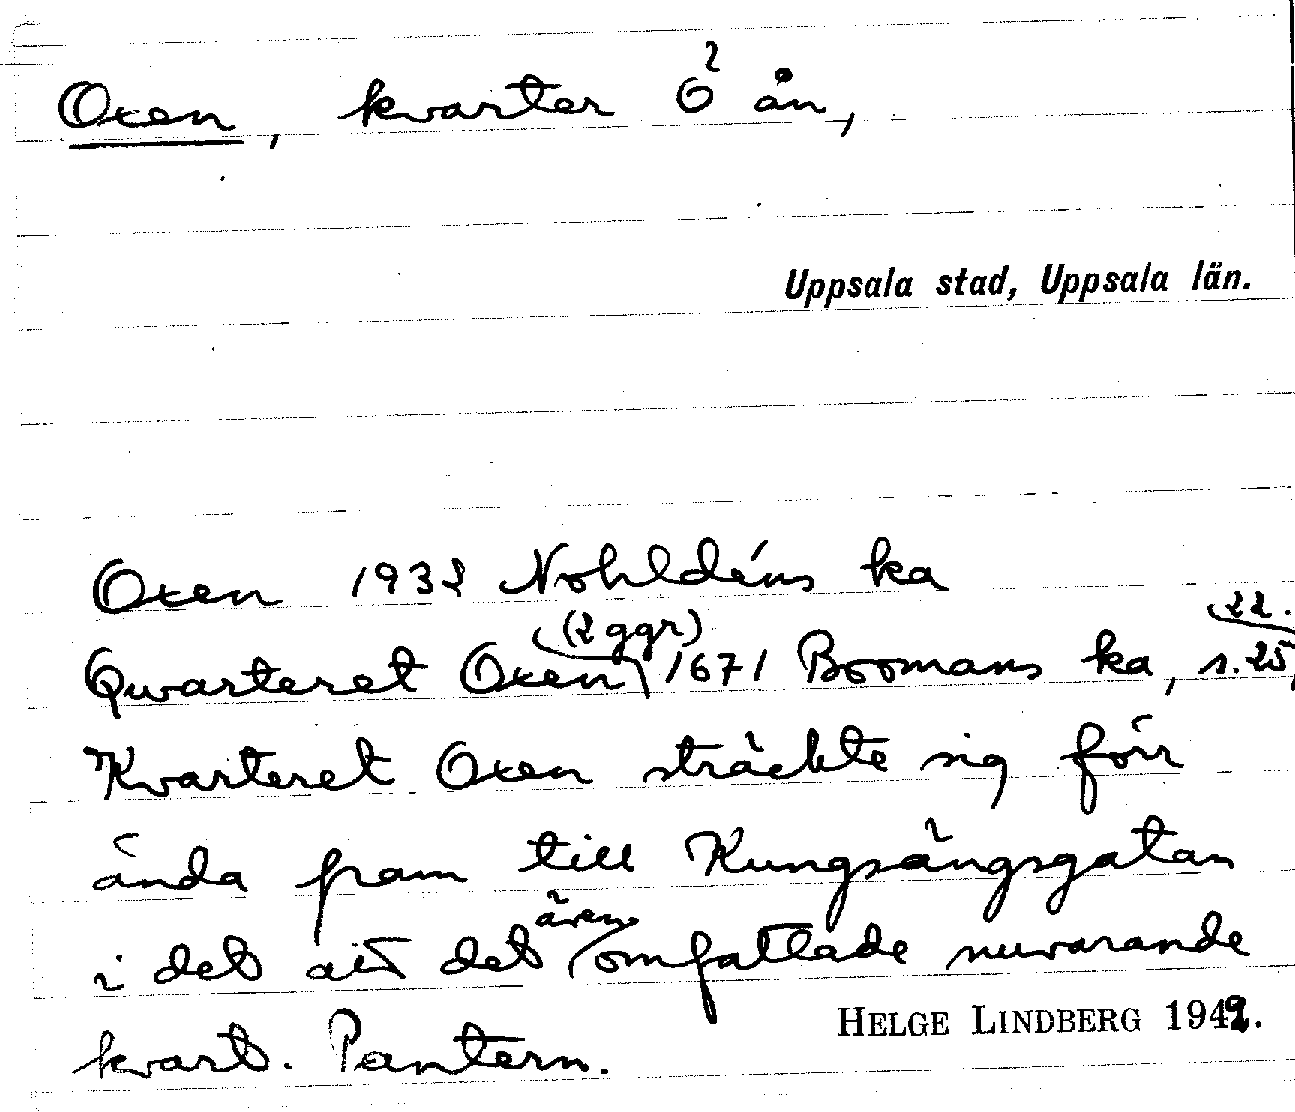 Oxen, kvarter ö ån,
Uppsala stad, Uppsala län.
Oxen 1932 Nohldéns ka
Qwarteret Oxen (2 ggr) 1671 Boomans ka, s. 25, 22.
Kvarteret Oxen sträckte sig förr
ända fram till Kungsängsgatan
i det att det även omfattade nuvarande
kvart. Pantern.
HELGE LINDBERG 1942.